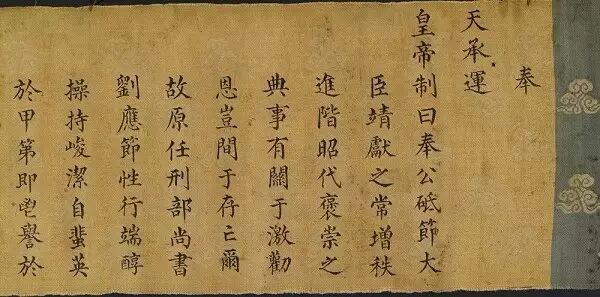 奉
天承運
皇帝制曰奉公砥節大
臣靖獻之常增秩
進階昭代褒崇之
典事有關于激勸
恩豈間于存亡爾
故原任刑部尚書
劉應節性行端醇
操持峻潔自蜚英
於甲第即鬯譽於